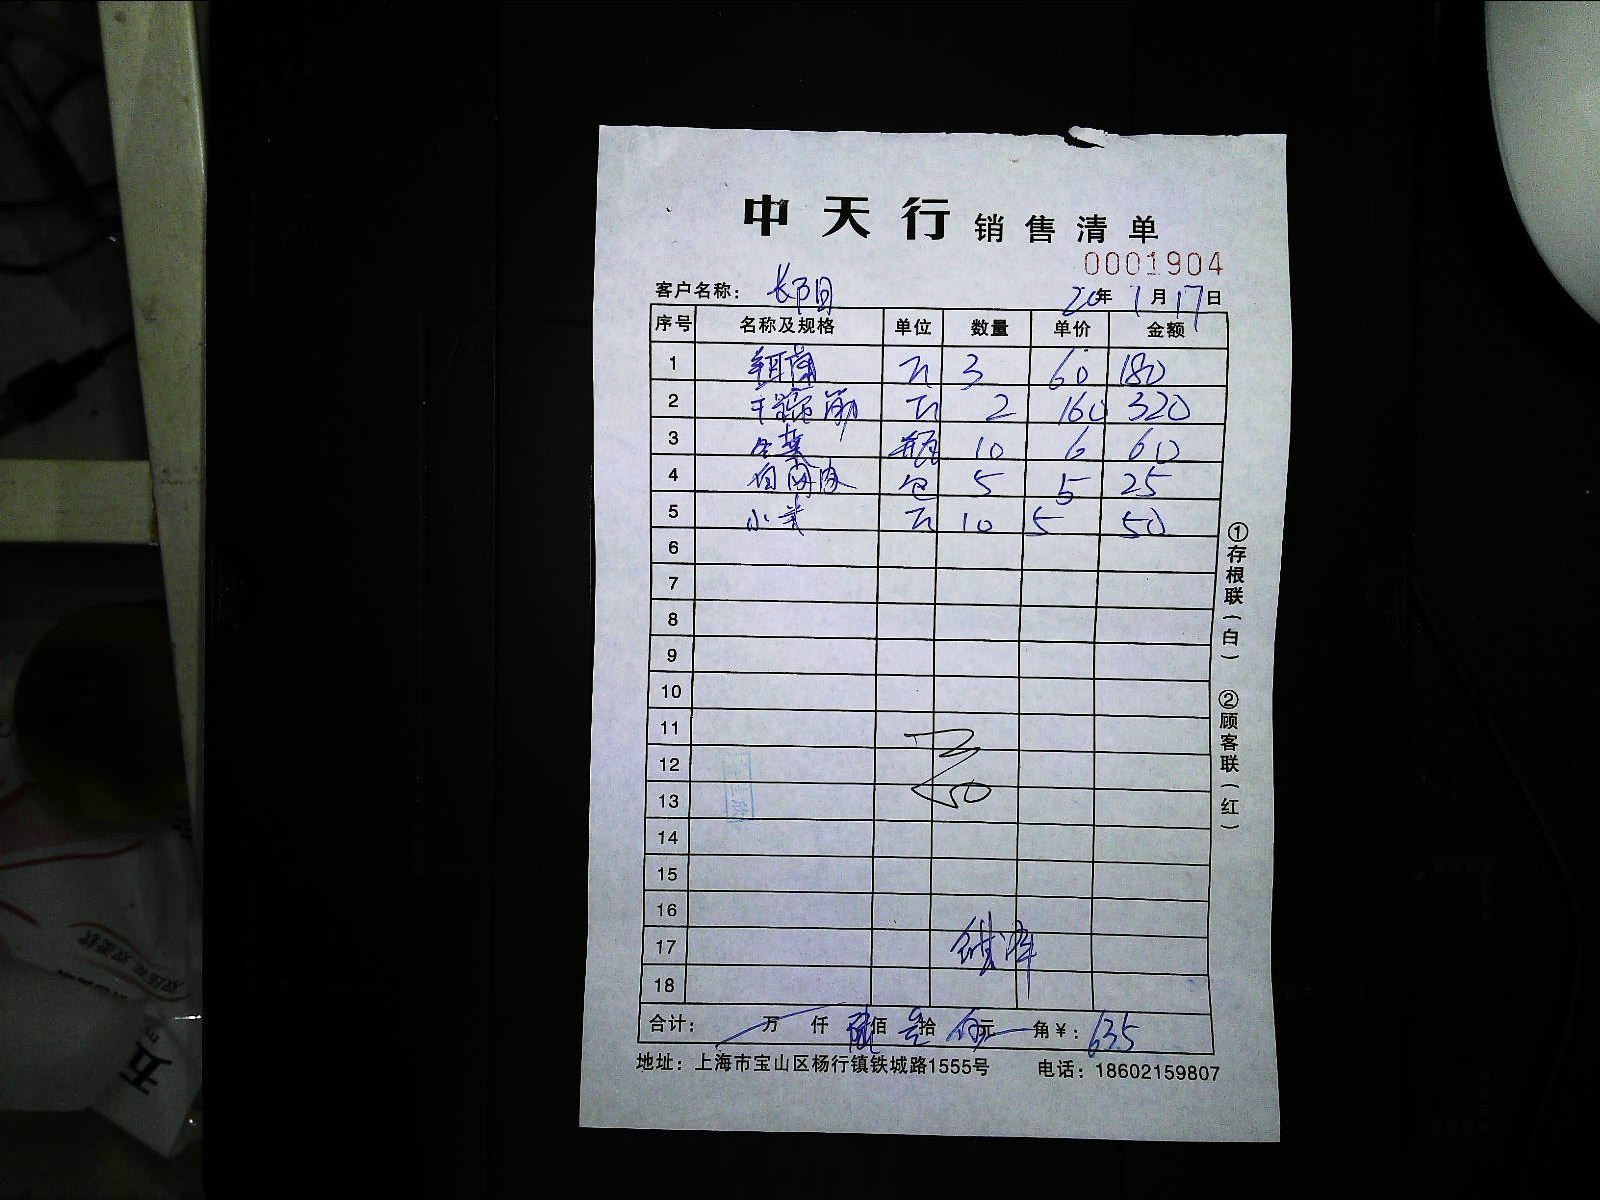 中天行 销售清单
0001904
客户名称： 长阳 20年 1月 17日
序号 名称及规格 单位 数量 单价 金额
1 斤 3 60 180
2 干 筋 斤 2 160 320
3 瓶 10 6 60
4 包 5 5 25
5 小 斤 10 5 50
6
7
8
9
10
11
12
13
14
15
16
17
18
合计： 万 仟 陆佰 叁拾 伍元 角￥：635
地址：上海市宝山区杨行镇铁城路1555号 电话：18602159807
①存根联（白） ②顾客联（红）
五